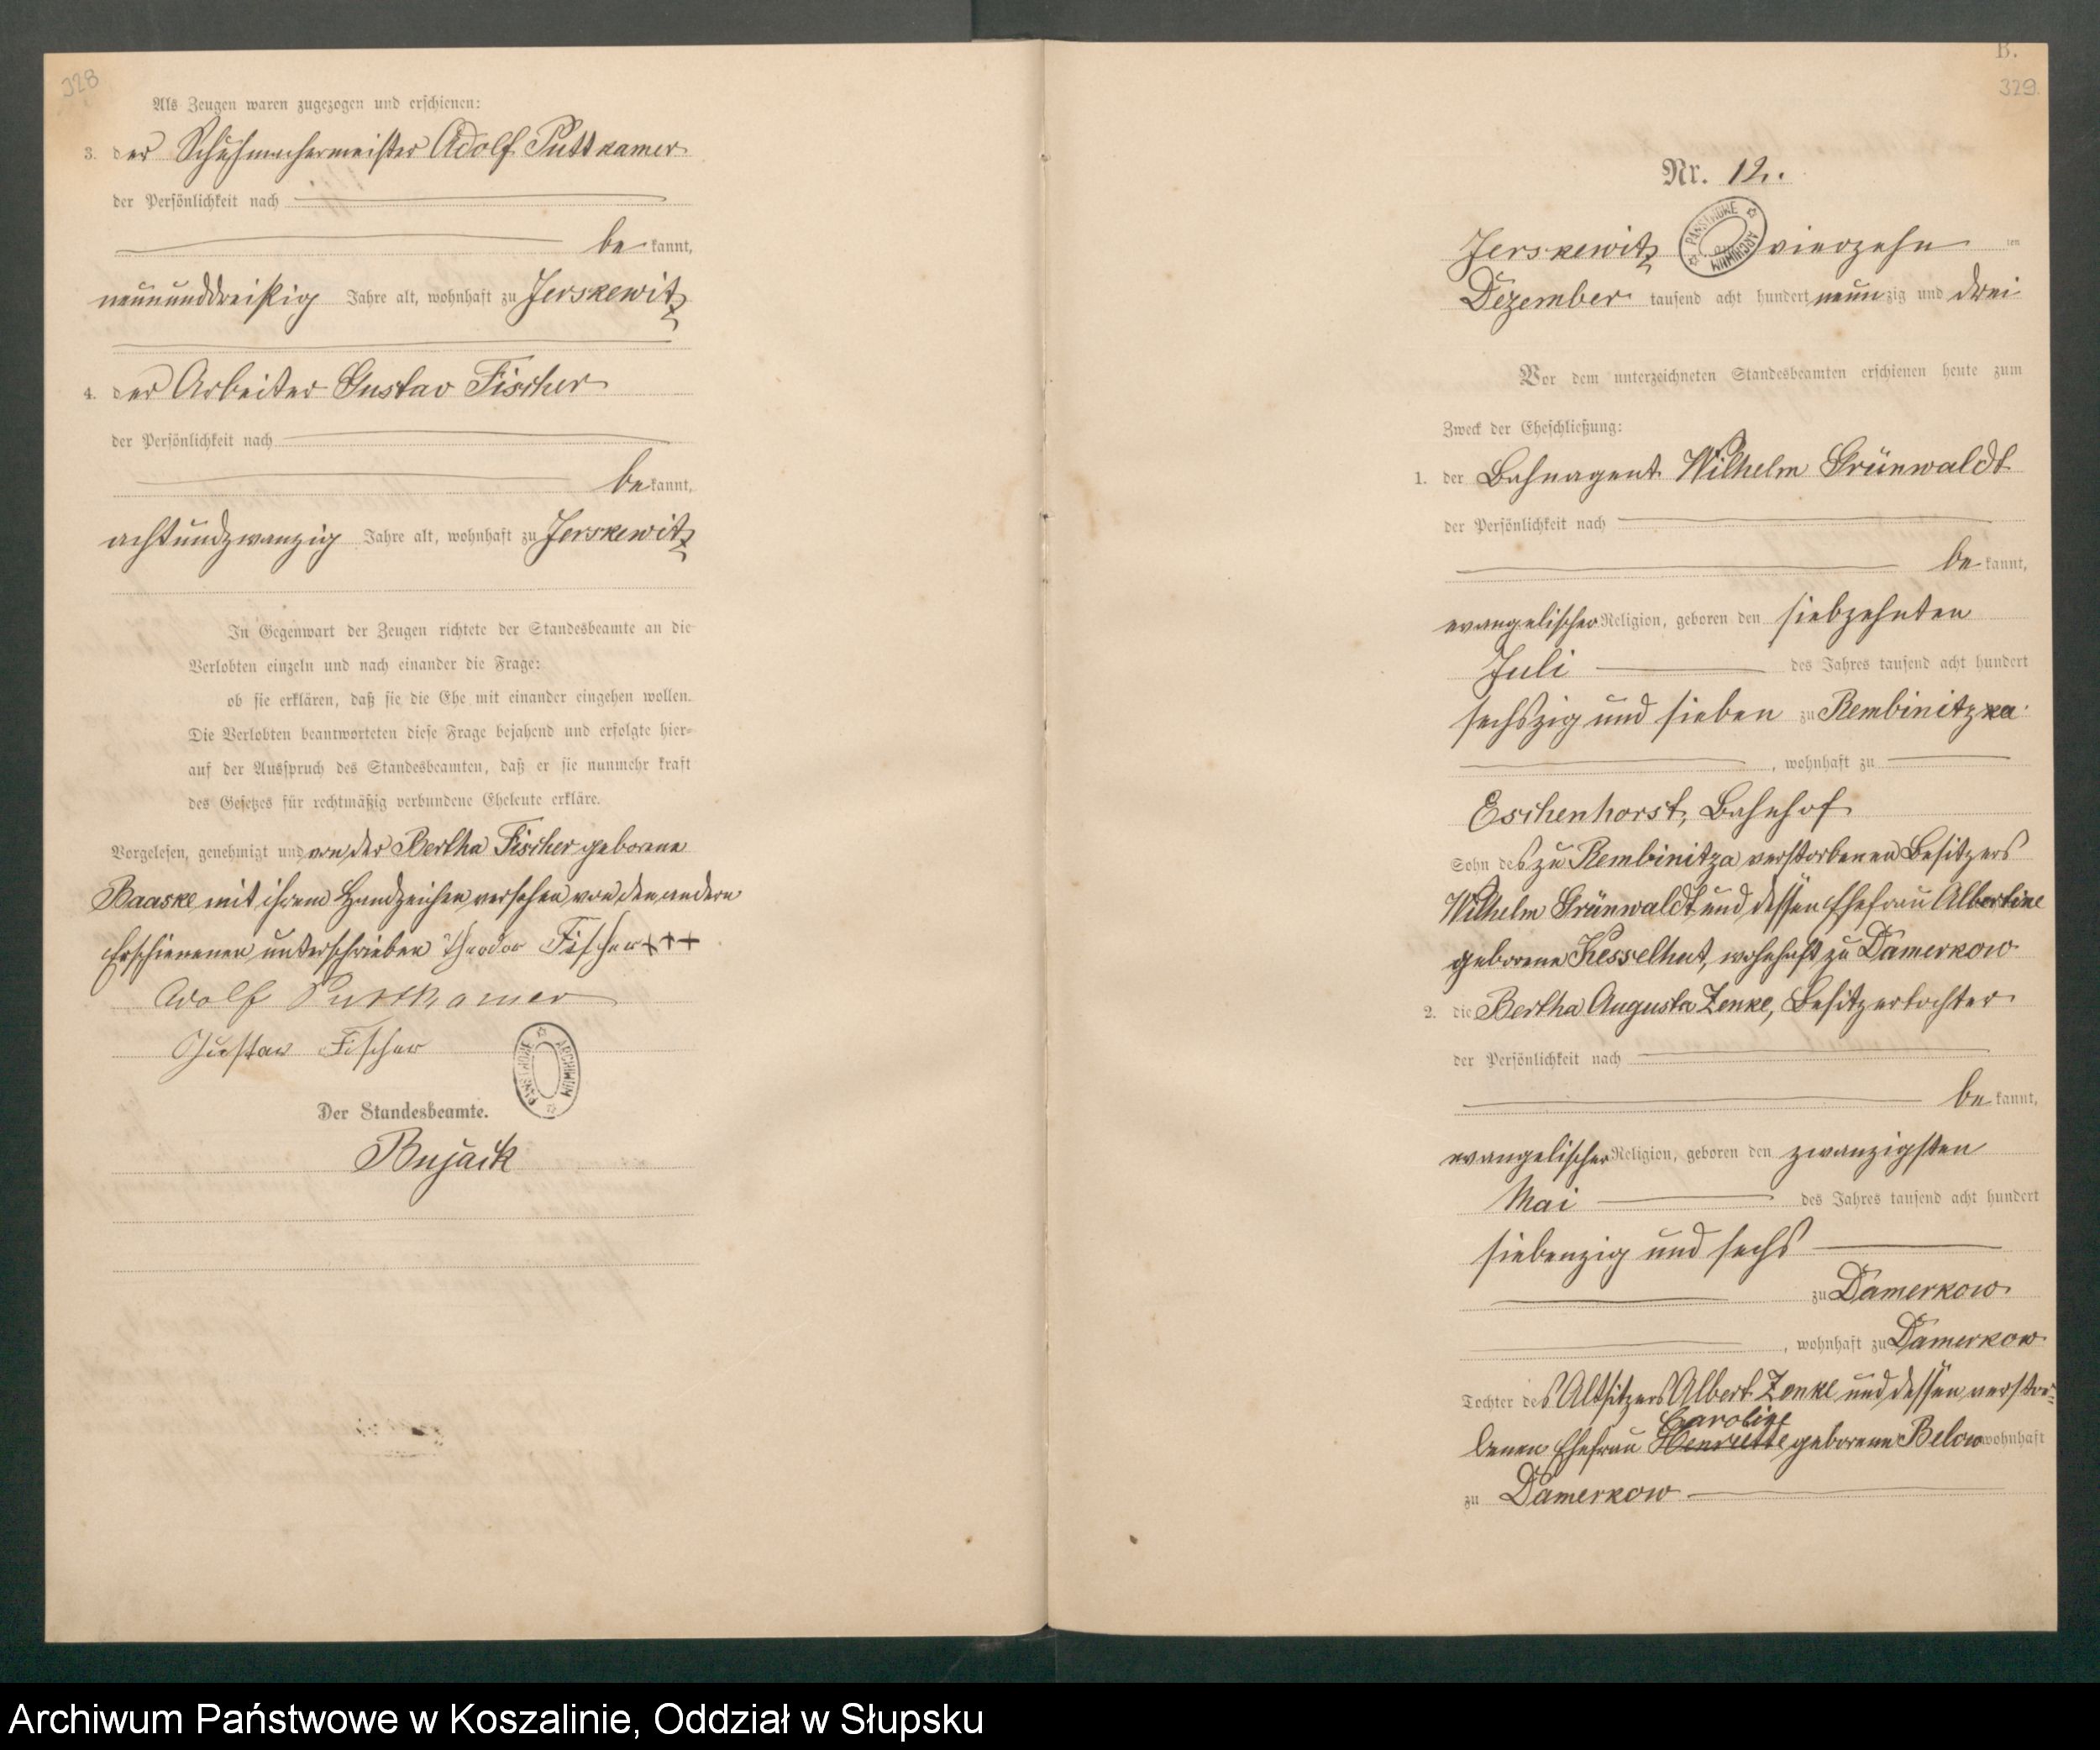 328
Als Zeugen waren zugezogen und erschienen:
3. der Schuhmachermeister Adolf Puttkamer
der Persönlichkeit nach
be kannt,
neununddreißig Jahre alt, wohnhaft zu Jerskewitz
4. der Arbeiter Gustav Fischer
der Persönlichkeit nach
be kannt,
achtundzwanzig Jahre alt, wohnhaft zu Jerskewitz
In Gegenwart der Zeugen richtete der Standesbeamte an die
Verlobten einzeln und nach einander die Frage:
ob sie erklären, daß sie die Ehe mit einander eingehen wollen.
Die Verlobten beantworteten diese Frage bejahend und erfolgte hier-
auf der Ausspruch des Standesbeamten, daß er sie nunmehr kraft
des Gesetzes für rechtmäßig verbundene Eheleute erkläre.
Vorgelesen, genehmigt und von der Bertha Fischer geborene
Baaske mit ihrem Handzeichen versehen, von den andern
Erschienenen unterschrieben Theodor Fischer +++
Adolf Puttkamer
Gustav Fischer
PAŃSTWOWE ARCHIWUM
Der Standesbeamte.
Bujack
B.
329.
Nr. 12.
Jerskewitz vierzehn ten
PAŃSTWOWE ARCHIWUM
Dezember tausend acht hundert neunzig und drei
Vor dem unterzeichneten Standesbeamten erschienen heute zum
Zweck der Eheschließung:
1. der Bahnagent Wilhelm Grünwaldt
der Persönlichkeit nach
be kannt,
evangelischer Religion, geboren den siebzehnten
Juli des Jahres tausend acht hundert
sechszig und sieben zu Rembinitzka
, wohnhaft zu
Eschenhorst, Bahnhof
Sohn des zu Rembinitza verstorbenen Besitzers
Wilhelm Grünwaldt und dessen Ehefrau Albertine
geborene Kesselhut, wohnhaft zu Damerkow
2. die Bertha Augusta Zenke, Besitzertochter
der Persönlichkeit nach
be kannt,
evangelischer Religion, geboren den zwanzigsten
Mai des Jahres tausend acht hundert
siebenzig und sechs
zu Damerkow
, wohnhaft zu Damerkow
Tochter des Altsitzers Albert Zenke und dessen verstor-
Caroline
benen Ehefrau Henriette geborene Below wohnhaft
zu Damerkow
Archiwum Państwowe w Koszalinie, Oddział w Słupsku